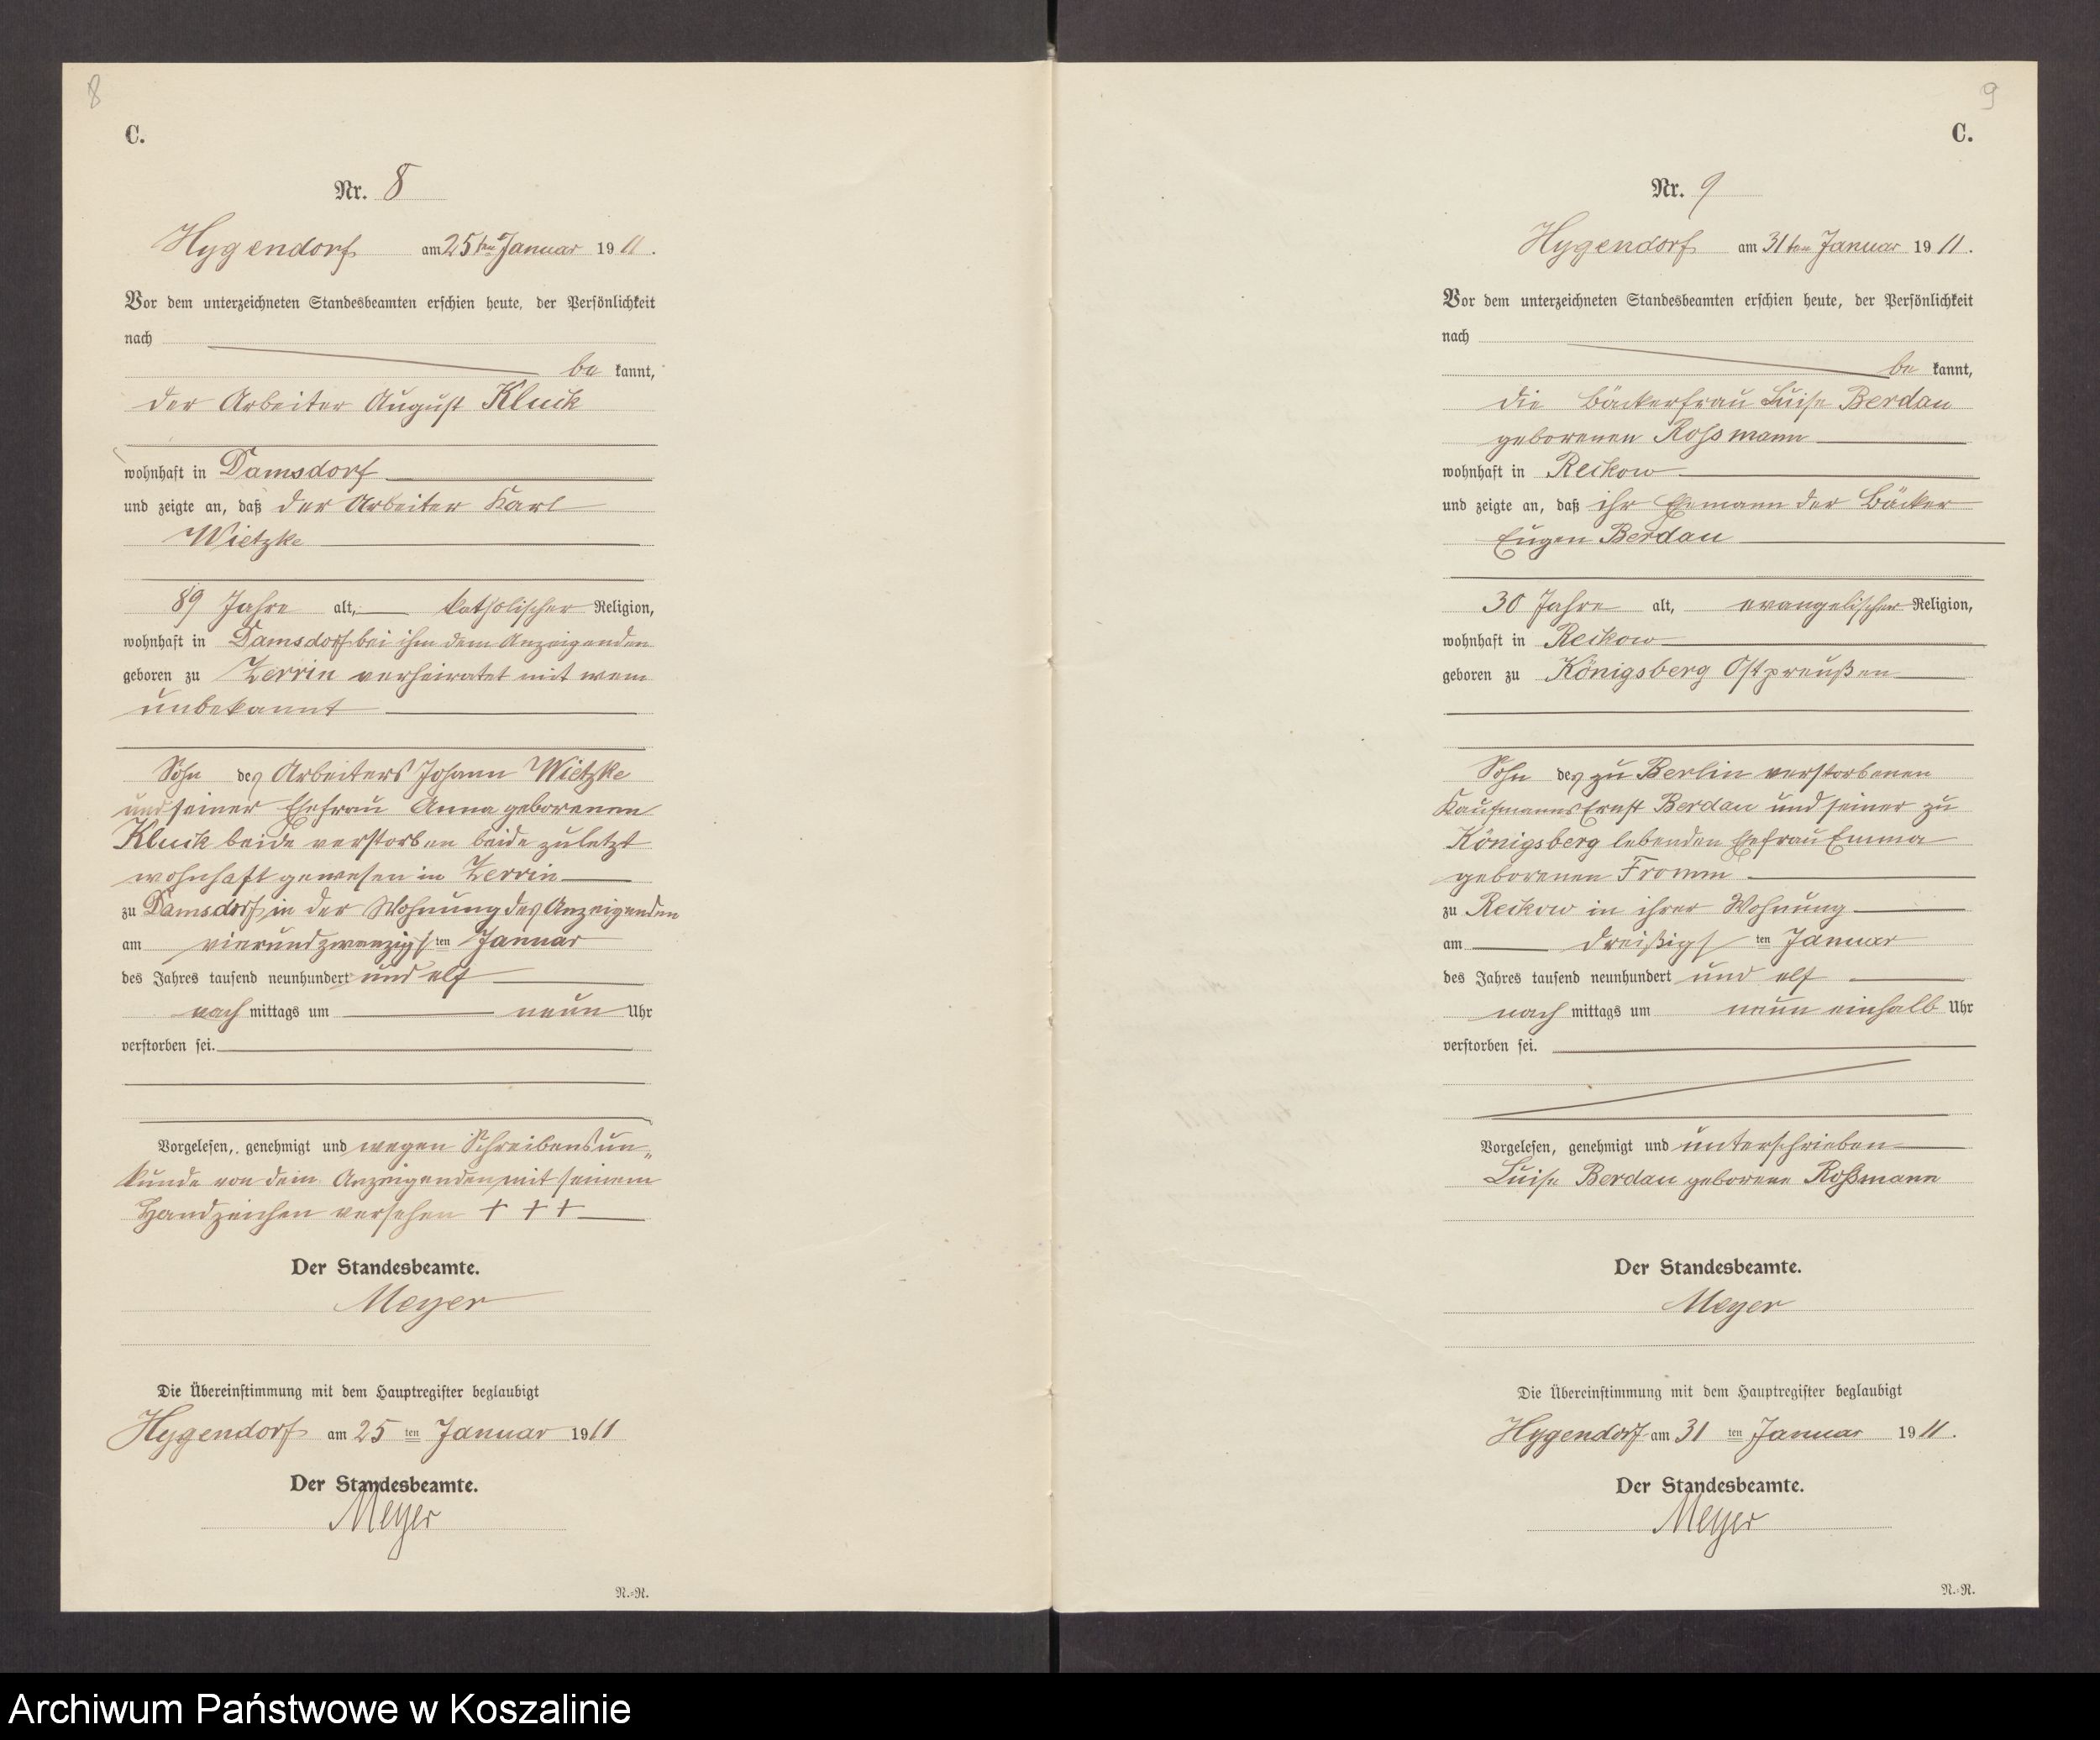 8
C.
Nr. 8
Hygendorf am 25ten Januar 1911.
Vor dem unterzeichneten Standesbeamten erschien heute, der Persönlichkeit
nach
be kannt,
der Arbeiter August Kluck
wohnhaft in Damsdorf
und zeigte an, daß der Arbeiter Karl
Wietzke
89 Jahre alt, katholischer Religion,
wohnhaft in Damsdorf bei ihm dem Anzeigenden
geboren zu Zerrin verheiratet mit wem
unbekannt
Sohn des Arbeiters Johann Wietzke
und seiner Ehefrau Anna geborenen
Kluck beide verstorben beide zuletzt
wohnhaft gewesen in Zerrin
zu Damsdorf in der Wohnung des Anzeigenden
am vierundzwanzigsten Januar
des Jahres tausend neunhundert und elf
nach mittags um neun Uhr
verstorben sei.
Vorgelesen, genehmigt und wegen Schreibensun„
kunde von dem Anzeigenden mit seinem
Handzeichen versehen + + +
Der Standesbeamte.
Meyer
Die Übereinstimmung mit dem Hauptregister beglaubigt
Hygendorf am 25 ten Januar 1911
Der Standesbeamte.
Meyer
N.-N.
9
C.
Nr. 9
Hygendorf am 31ten Januar 1911.
Vor dem unterzeichneten Standesbeamten erschien heute, der Persönlichkeit
nach
be kannt,
die Bäckerfrau Luise Berdau
geborenen Rossmann
wohnhaft in Reckow
und zeigte an, daß ihr Ehemann der Bäcker
Eugen Berdau
30 Jahre alt, evangelischer Religion,
wohnhaft in Reckow
geboren zu Königsberg Ostpreußen
Sohn des zu Berlin verstorbenen
Kaufmanns Ernst Berdau und seiner zu
Königsberg lebenden Ehefrau Emma
geborenen Fromm
zu Reckow in ihrer Wohnung
am dreißigsten Januar
des Jahres tausend neunhundert und elf
nach mittags um neun einhalb Uhr
verstorben sei.
Vorgelesen, genehmigt und unterschrieben
Luise Berdau geborene Roßmann
Der Standesbeamte.
Meyer
Die Übereinstimmung mit dem Hauptregister beglaubigt
Hygendorf am 31 ten Januar 1911.
Der Standesbeamte.
Meyer
N.-N.
Archiwum Państwowe w Koszalinie